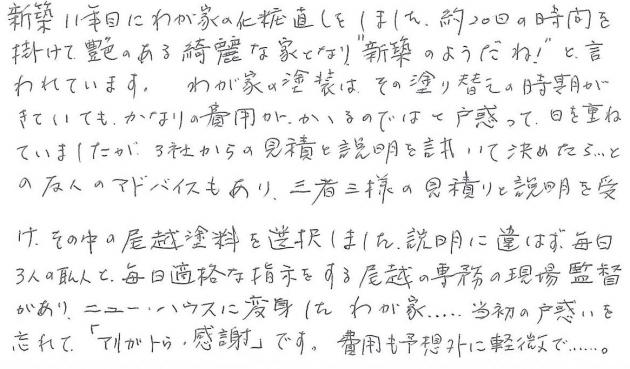 新築11年目にわが家の化粧直しをしました。約20日の時間を
掛けて艶のある綺麗な家となり"新築のようだね!"と言
われています。 わが家の塗装は、その塗り替えの時期が
きていても、かなりの費用がかかるのではと戸惑って、日を重ね
ていましたが、3社からの見積と説明を訊いて決めたら…と
の友人のアドバイスもあり、三者三様の見積りと説明を受
け、その中の尾越塗料を選択しました。説明に違はず、毎日
3人の職人と、毎日適格な指示をする尾越の専務の現場監督
があり、ニュー・ハウスに変身したわが家……当初の戸惑いを
忘れて、「アリガトウ・感謝」です。費用も予想外に軽微で……。